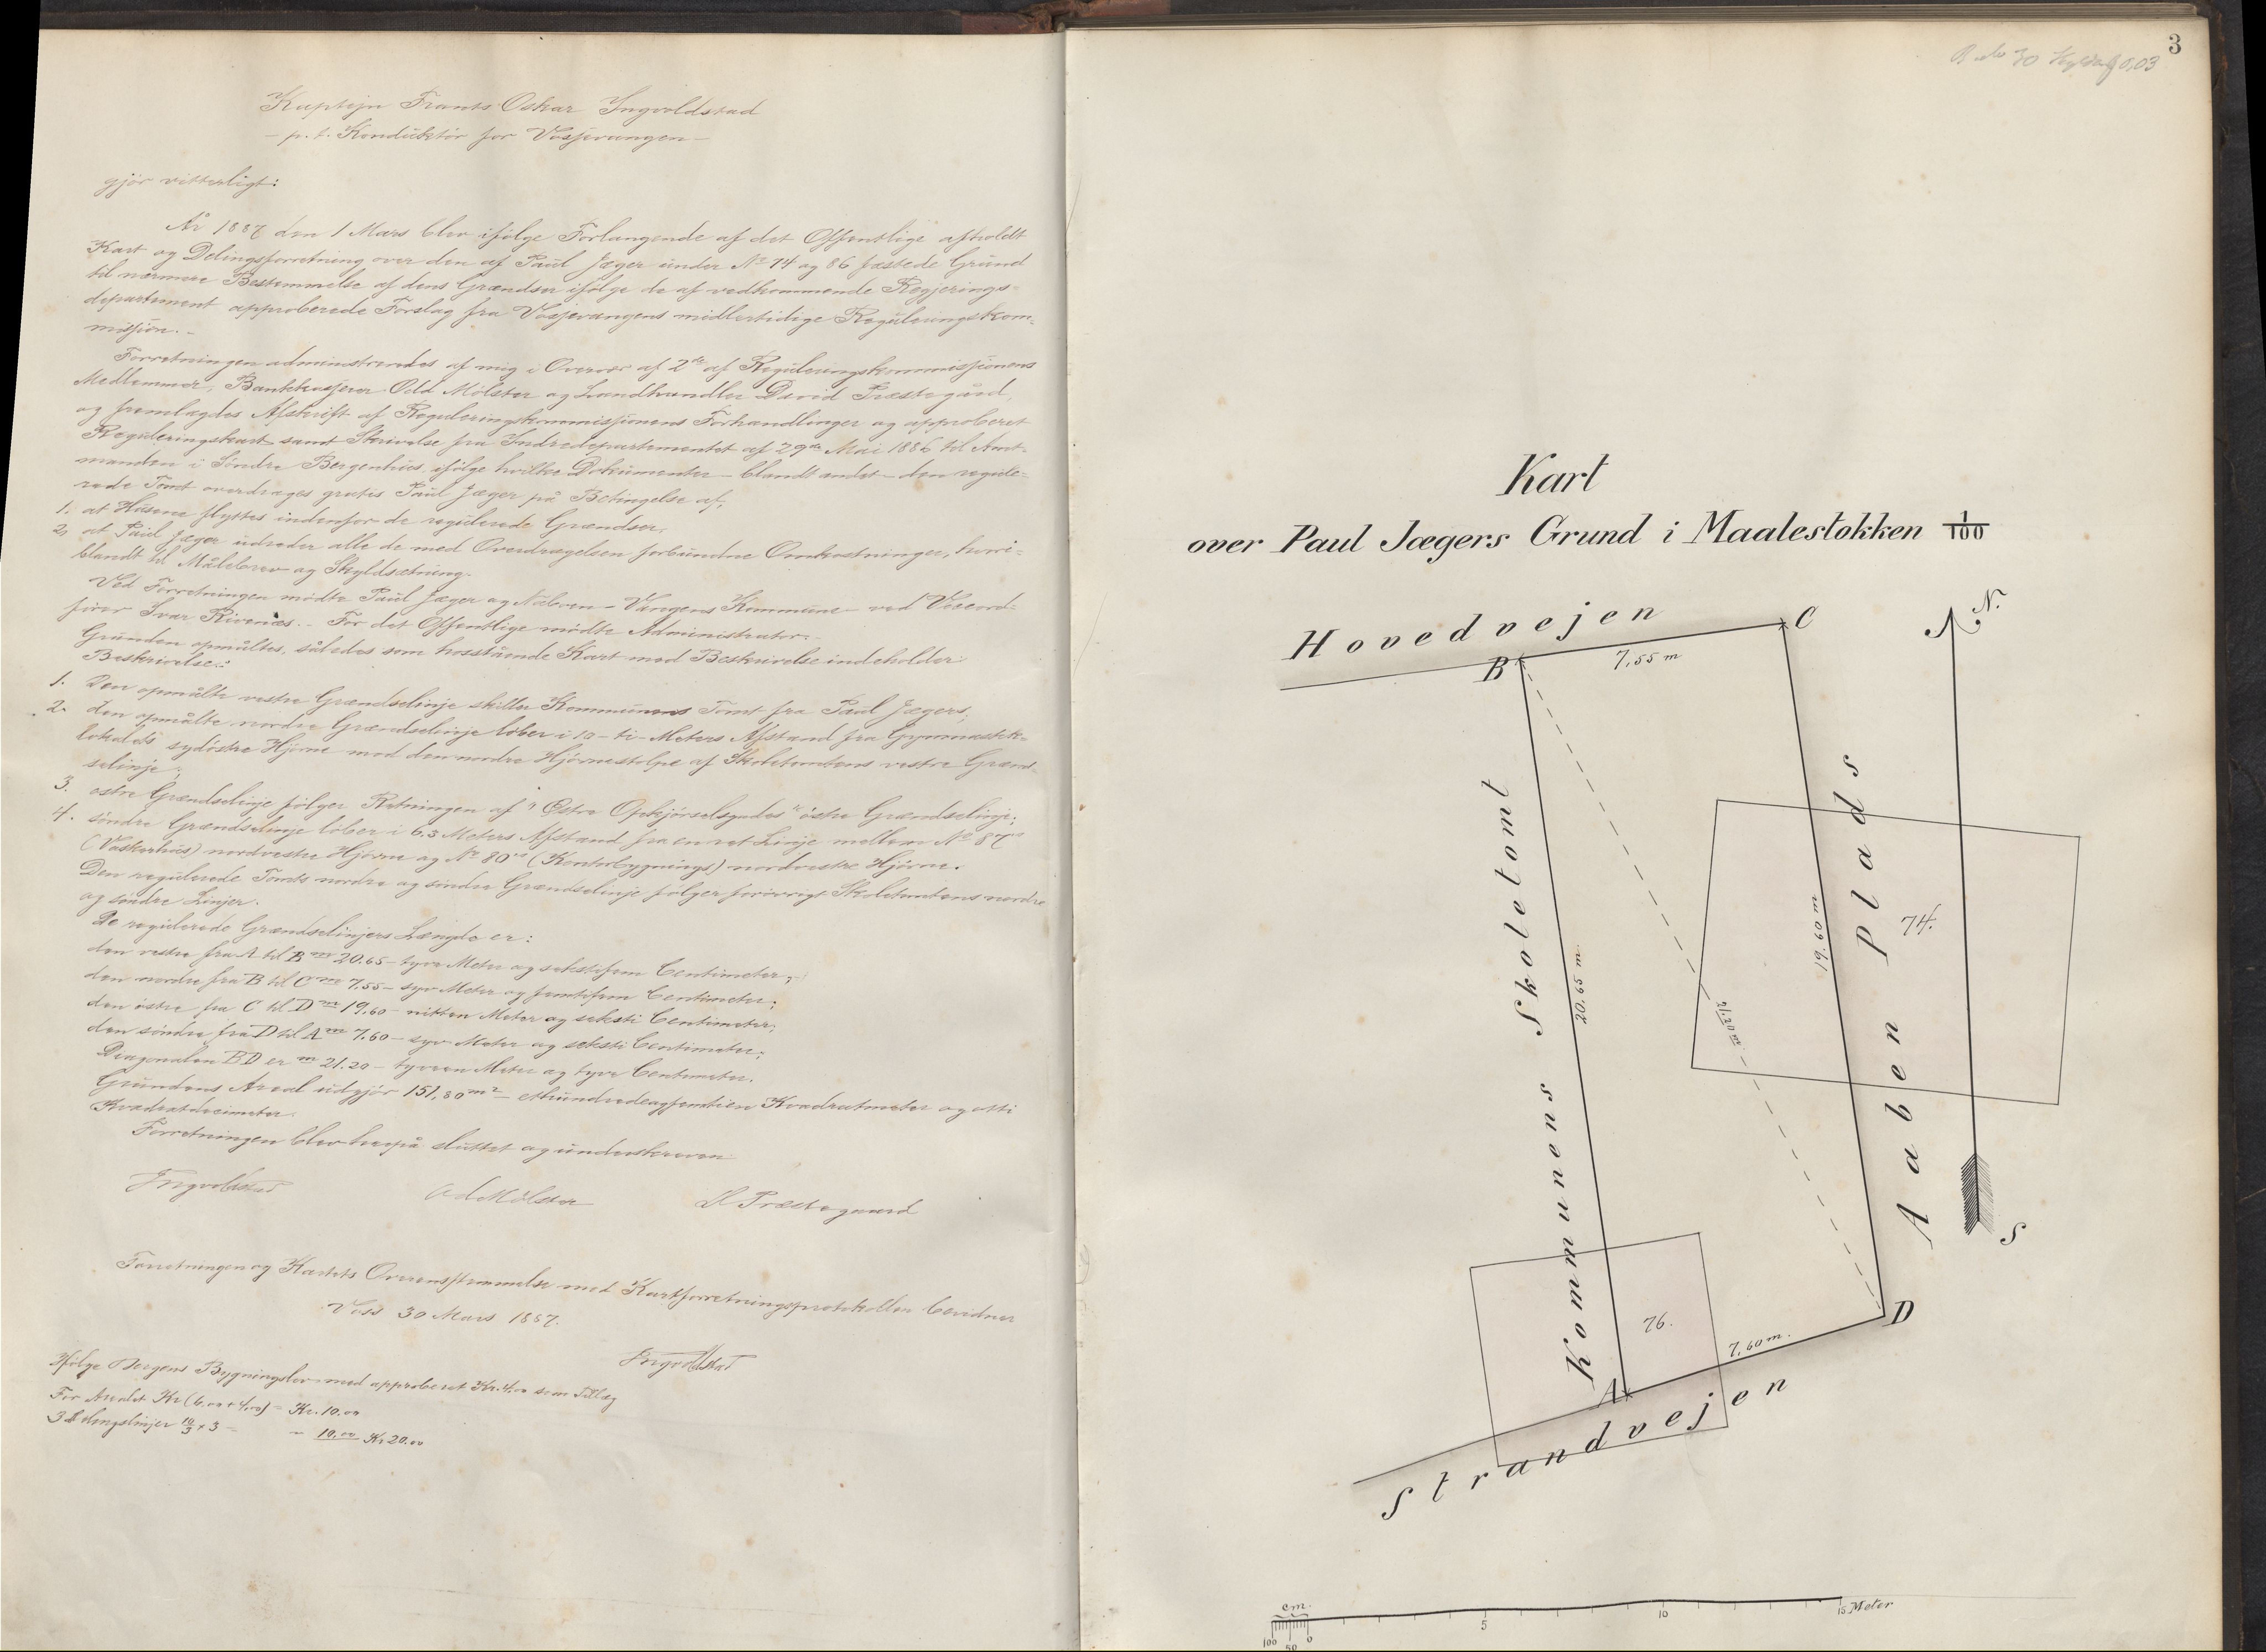 Kaptejn Frants Oskar Ingvoldstad
– p. t. Konduktör for Vossevangen –
gjör vitterligt:
År 1887 den 1 Mars blev ifölge Forlangende af det Offentlige afholdt
Kart og Delingsforretning over den af Paul Jæger under No 74 og 86 fæstede Grund
til nærmere Bestemmelse af dens Grændser ifölge de af vedkommende Regjerings-
departement approberede Forslag fra Vossevangens midlertidige Reguleringskom-
mission.-
Forretningen administreredes af mig i Overvær af 2de af Reguleringskommissionens
Medlemmer, Bankkasserer Odd Mölster og Landhandler David Præstegård,
og fremlagdes Afskrift af Reguleringskommissionens Forhandlinger og approberet
Reguleringskart samt Skrivelse fra Indredepartementet af 29de Mai 1886 til Amt-
manden i Söndre Bergenhus, ifölge hvilke Dokumenter – blandt andet – den regule-
rede Tomt overdrages gratis Paul Jæger på Betingelse af,
1. at Husene flyttes indenfor de regulerede Grændser,
2, at Paul Jæger udreder alle de med Overdragelsen forbundne Omkostninger, hvori-
blandt til Målebrev og Skyldsætning.
Ved Forretningen mödte Paul Jæger og Naboen – Vangens Kommune – ved Viseord-
förer Ivar Rivenæs. – For det Offentlige mödte Administrator.-
Grunden opmåltes, således som hosstående Kart med Beskrivelse indeholder:
Beskrivelse:
1. Den opmålte vestre Grændselinje skiller Kommunens Tomt fra Paul Jægers;
2. den opmålte nordre Grændselinje löber i 10 – ti – Meters Afstand fra Gymnastik-
lokalets sydöstre Hjörne mod den nordre Hjörnestolpe af Skoletomtens vestre Grænd-
selinje;
3. östre Grændselinje fölger Retningen af "Östre Opkjörselsgades" östre Grændselinje;
4. söndre Grændselinje löber i 6.3 Meters Afstand fra en ret Linje mellem No 87
(Vaskerhus) nordvestre Hjörne og No 80 (Kontorbygnings) nordvestre Hjörne.
Den regulerede Tomts nordre og söndre Grændselinje fölger forövrigt Skoletomtens nordre
og söndre Linjer.
De regulerede Grændselinjers Længde er:
den vestre fra A til B m 20.65 – tyve Meter og sekstifem Centimeter;
den nordre fra B til C m 7.55 – syv Meter og femtifem Centimeter;
den östre fra C til D m 19.60 – nitten Meter og seksti Centimeter;
den söndre fra D til A m 7.60 – syv Meter og seksti Centimeter;
Diagonalen BD er m 21.20 – tyveen Meter og tyve Centimeter.
Grundens Areal udgjör 151,80 m2 – ethundredeogfemtien Kvadratmeter og otti
Kvadratdecimeter.
Forretningen blev herpå sluttet og underskreven
Ingvoldstad Od Mölster D Præstegaard
Forretningen og Kartets Overensstemmelse med Kartforretningsprotokollen bevidner
Voss 30 Mars 1887.
Ingvoldstad
Ifölge Bergens Bygningslov med approberet Kr. 4.00 som Tillæg
For Arealet Kr (6.00 + 4.00) = Kr. 10.00
3 Delingslinjer 10/3 × 3 = – 10.00 Kr 20.00
3
0,03
Kart
over Paul Jægers Grund i Maalestokken 1/100
Hovedvejen
N.
B
C
7,55 m
Kommunens Skoletomt
20,65 m.
21,20 m.
19,60 m
Aaben Plads
74.
S
76.
7,60 m.
A
D
Strandvejen
cm.
100 50 0 5 10 15 Meter